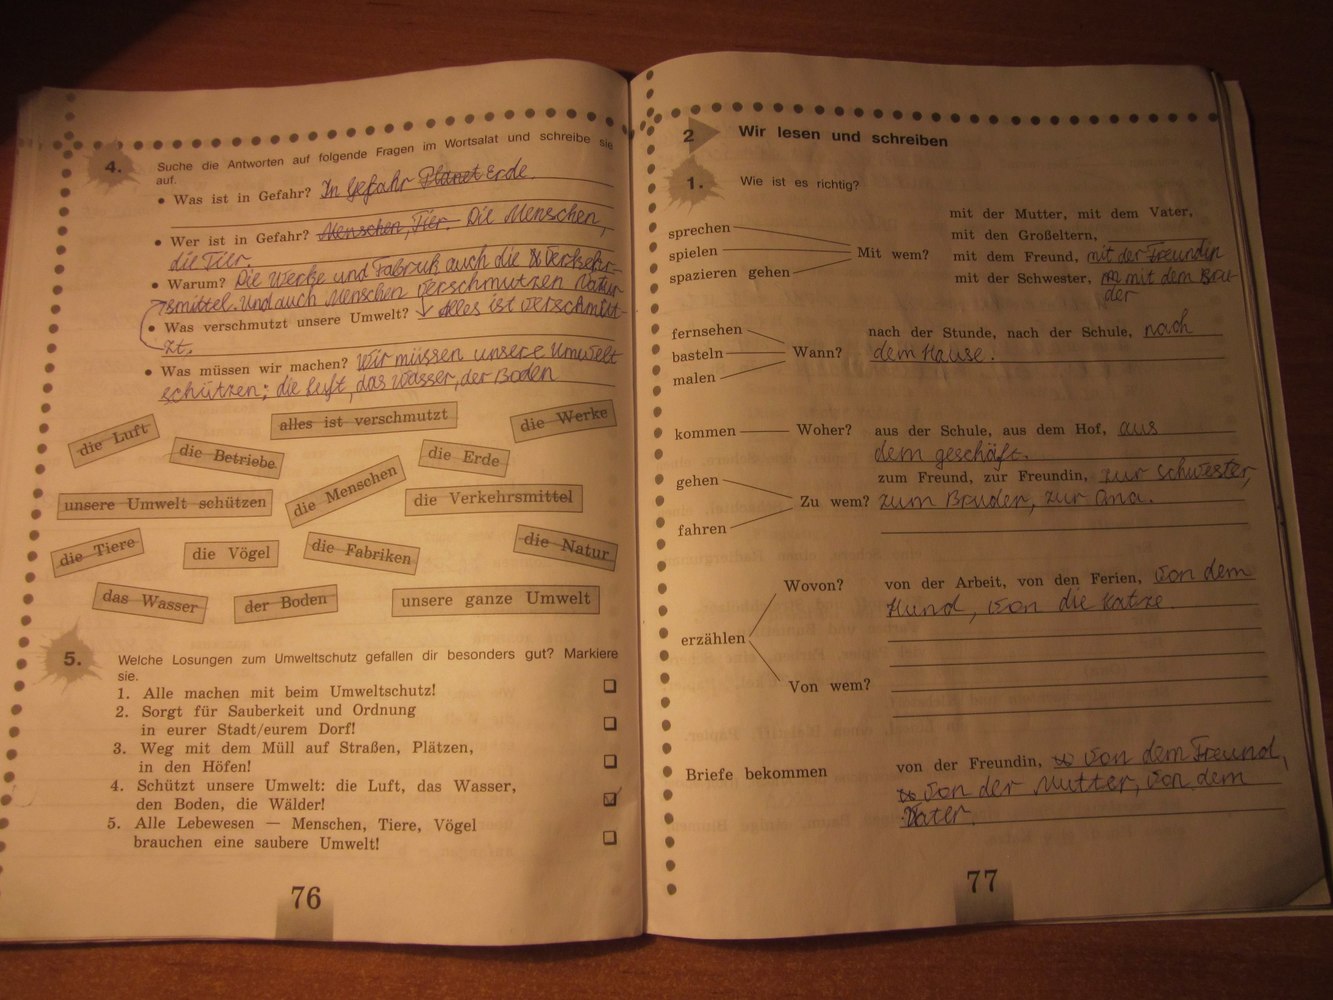 4. Suche die Antworten auf folgende Fragen im Wortsalat und schreibe sie
auf.
• Was ist in Gefahr? In Gefahr Planet Erde.
• Wer ist in Gefahr? Menschen, Tier. Die Menschen,
die Tier.
• Warum? Die Werke und Fabruk auch die Verkehr-
smittel. und auch Menschen verschmutzen Natur
• Was verschmutzt unsere Umwelt? Alles ist verschmut-
zt.
• Was müssen wir machen? Wir müssen unsere Umwelt
schützen: die Luft, das Wasser, der Boden
die Luft
alles ist verschmutzt
die Werke
die Betriebe
die Erde
unsere Umwelt schützen
die Menschen
die Verkehrsmittel
die Tiere
die Vögel
die Fabriken
die Natur
das Wasser
der Boden
unsere ganze Umwelt
5. Welche Losungen zum Umweltschutz gefallen dir besonders gut? Markiere
sie.
1. Alle machen mit beim Umweltschutz!
2. Sorgt für Sauberkeit und Ordnung
in eurer Stadt/eurem Dorf!
3. Weg mit dem Müll auf Straßen, Plätzen,
in den Höfen!
4. Schützt unsere Umwelt: die Luft, das Wasser,
den Boden, die Wälder!
5. Alle Lebewesen — Menschen, Tiere, Vögel
brauchen eine saubere Umwelt!
76
2 Wir lesen und schreiben
1. Wie ist es richtig?
sprechen
spielen
spazieren gehen
Mit wem?
mit der Mutter, mit dem Vater,
mit den Großeltern,
mit dem Freund, mit der Freundin
mit der Schwester, mit dem Bru-
der
fernsehen
basteln
malen
Wann?
nach der Stunde, nach der Schule, nach
dem Hause.
kommen
Woher?
aus der Schule, aus dem Hof, aus
dem geschäft.
gehen
fahren
Zu wem?
zum Freund, zur Freundin, zur Schwester,
zum Bruder, zur Ana.
erzählen
Wovon?
von der Arbeit, von den Ferien, von dem
Hund, von die Katze
Von wem?
Briefe bekommen
von der Freundin, von dem Freund,
von der Mutter, von dem
Vater.
77